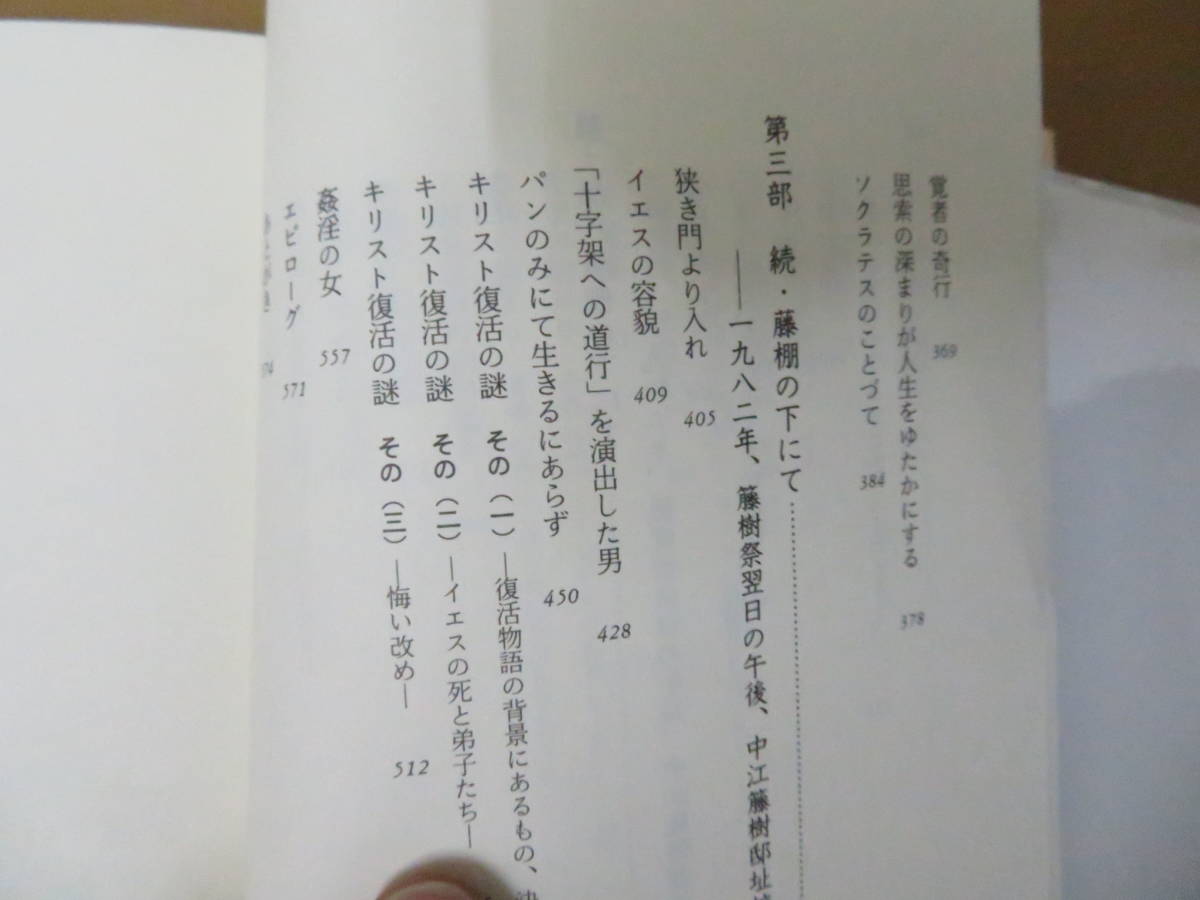 覚者の奇行 369
思索の深まりが人生をゆたかにする 378
ソクラテスのことづて 384
第三部 続・藤棚の下にて
――一九八二年、藤樹祭翌日の午後、中江藤樹邸址
狭き門より入れ 405
イエスの容貌 409
「十字架への道行」を演出した男 428
パンのみにて生きるにあらず 450
キリスト復活の謎 その(一)―復活物語の背景にあるもの、
キリスト復活の謎 その(二)―イエスの死と弟子たち―
キリスト復活の謎 その(三)―悔い改め― 512
姦淫の女 557
エピローグ 571